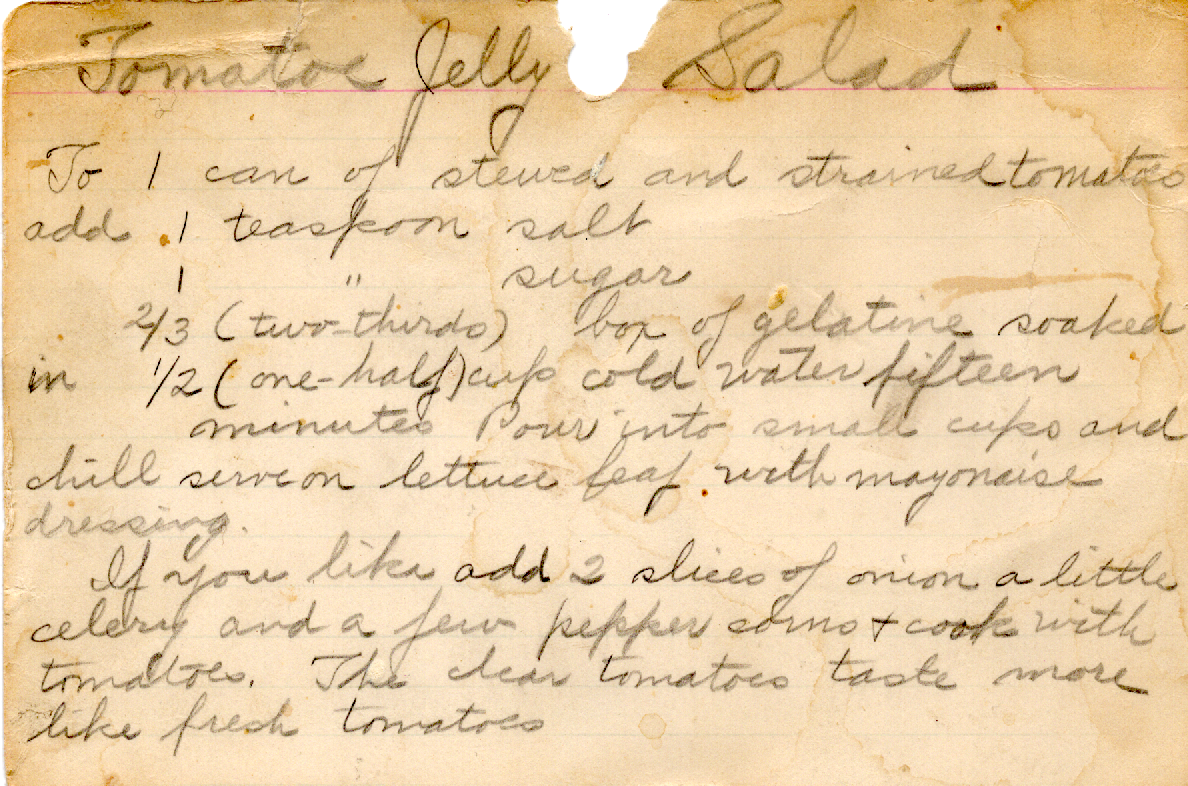 Tomatoe Jelly Salad
To 1 can of stewed and strained tomatoes
add 1 teaspoon salt
1 " sugar
2/3 (two-thirds) box of gelatine soaked
in 1/2 (one-half) cup cold water fifteen
minutes Pour into small cups and
chill serve on lettuce leaf with mayonaise
dressing.
If you like add 2 slices of onion a little
celery and a few pepper corns + cook with
tomatoes. The clear tomatoes taste more
like fresh tomatoes